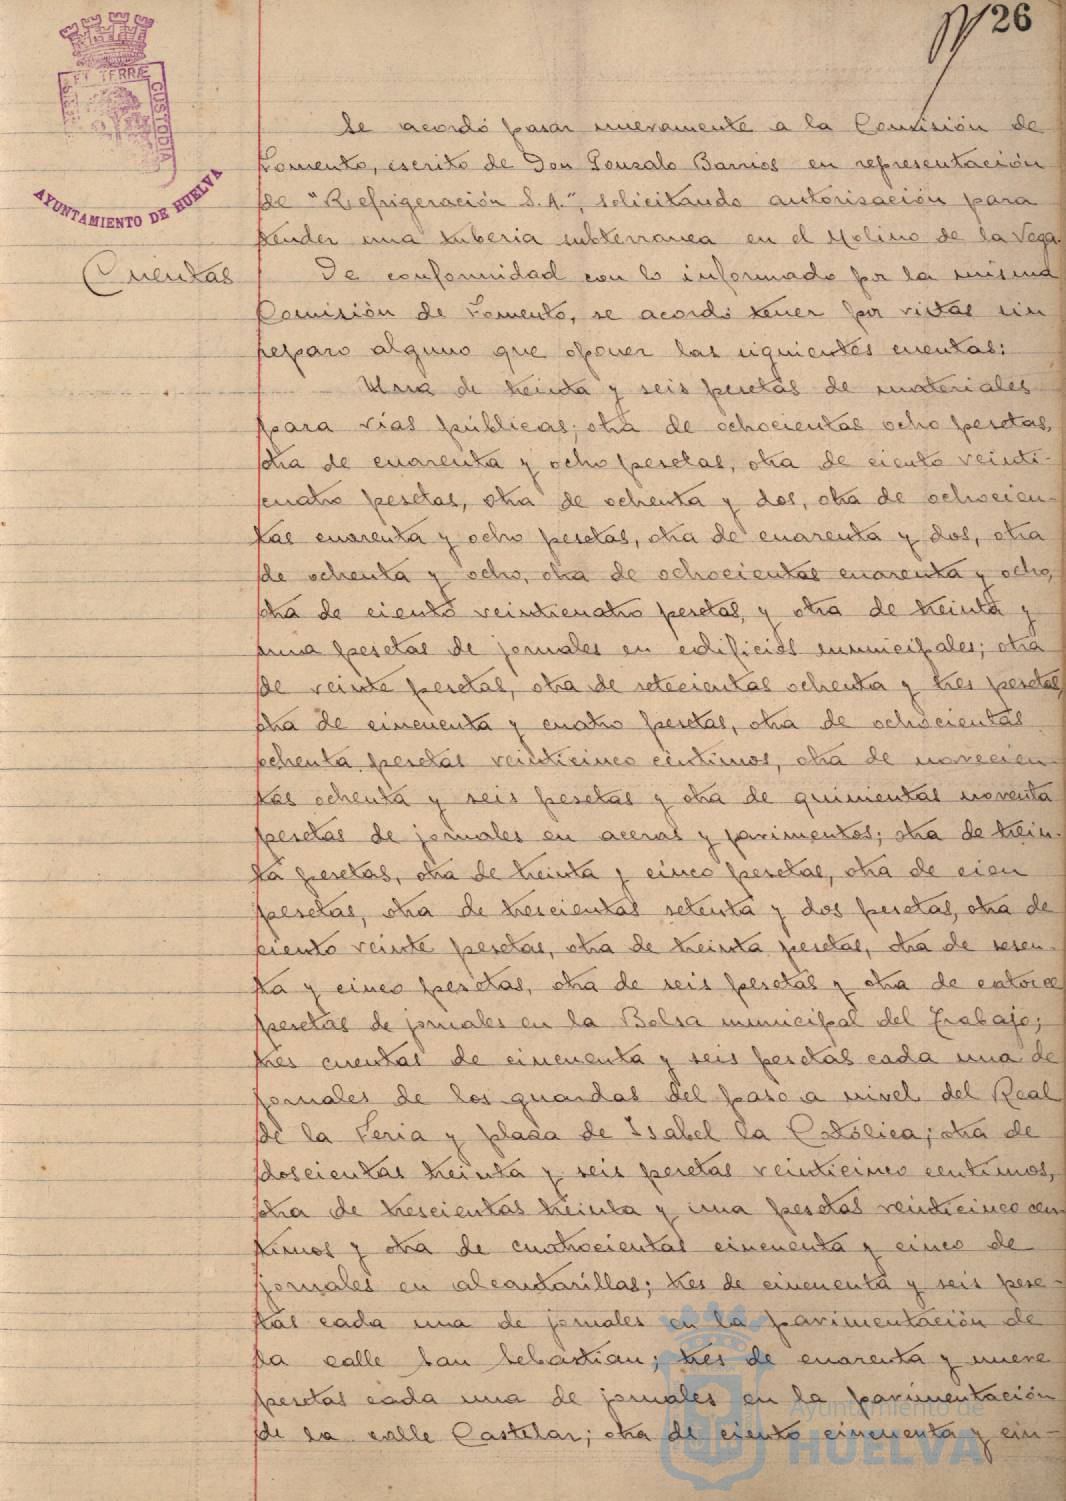 26
ET TERRÆ CUSTODIA
AYUNTAMIENTO DE HUELVA
Se acordó pasar nuevamente a la Comisión de
Fomento, escrito de Don Gonzalo Barrios en representación
de "Refrigeración S.A.", solicitando autorisación para
tender una tuberia subterranea en el Molino de la Vega.
Cuentas
De conformidad con lo informado por la misma
Comisión de Fomento, se acordó tener por vistas sin
reparo alguno que oponer las siguientes cuentas:
Una de treinta y seis pesetas de materiales
para vías públicas; otra de ochocientas ocho pesetas,
otra de cuarenta y ocho pesetas, otra de ciento veinti-
cuatro pesetas, otra de ochenta y dos, otra de ochocien-
tas cuarenta y ocho pesetas, otra de cuarenta y dos, otra
de ochenta y ocho, otra de ochocientas cuarenta y ocho,
otra de ciento veinticuatro pesetas, y otra de treinta y
una pesetas de jornales en edificios municipales; otra
de veinte pesetas, otra de setecientas ochenta y tres pesetas,
otra de cincuenta y cuatro pesetas, otra de ochocientas
ochenta pesetas veinticinco centimos, otra de novecien-
tas ochenta y seis pesetas y otra de quinientas noventa
pesetas de jornales en aceras y pavimentos; otra de trein-
ta pesetas, otra de treinta y cinco pesetas, otra de cien
pesetas, otra de trescientas setenta y dos pesetas, otra de
ciento veinte pesetas, otra de treinta pesetas, otra de sesen-
ta y cinco pesetas, otra de seis pesetas y otra de catorce
pesetas de jornales en la Bolsa municipal del Trabajo;
tres cuentas de cincuenta y seis pesetas cada una de
jornales de los guardas del paso a nivel del Real
de la Feria y plaza de Isabel la Católica; otra de
doscientas treinta y seis pesetas veinticinco centimos,
otra de trescientas treinta y una pesetas veinticinco cen
timos y otra de cuatrocientas cincuenta y cinco de
jornales en alcantarillas; tres de cincuenta y seis pese-
tas cada una de jornales en la pavimentación de
la calle San Sebastian; tres de cuarenta y nueve
pesetas cada una de jornales en la pavimentación
de la calle Castelar; otra de ciento cincuenta y cin-
Ayuntamiento de
HUELVA